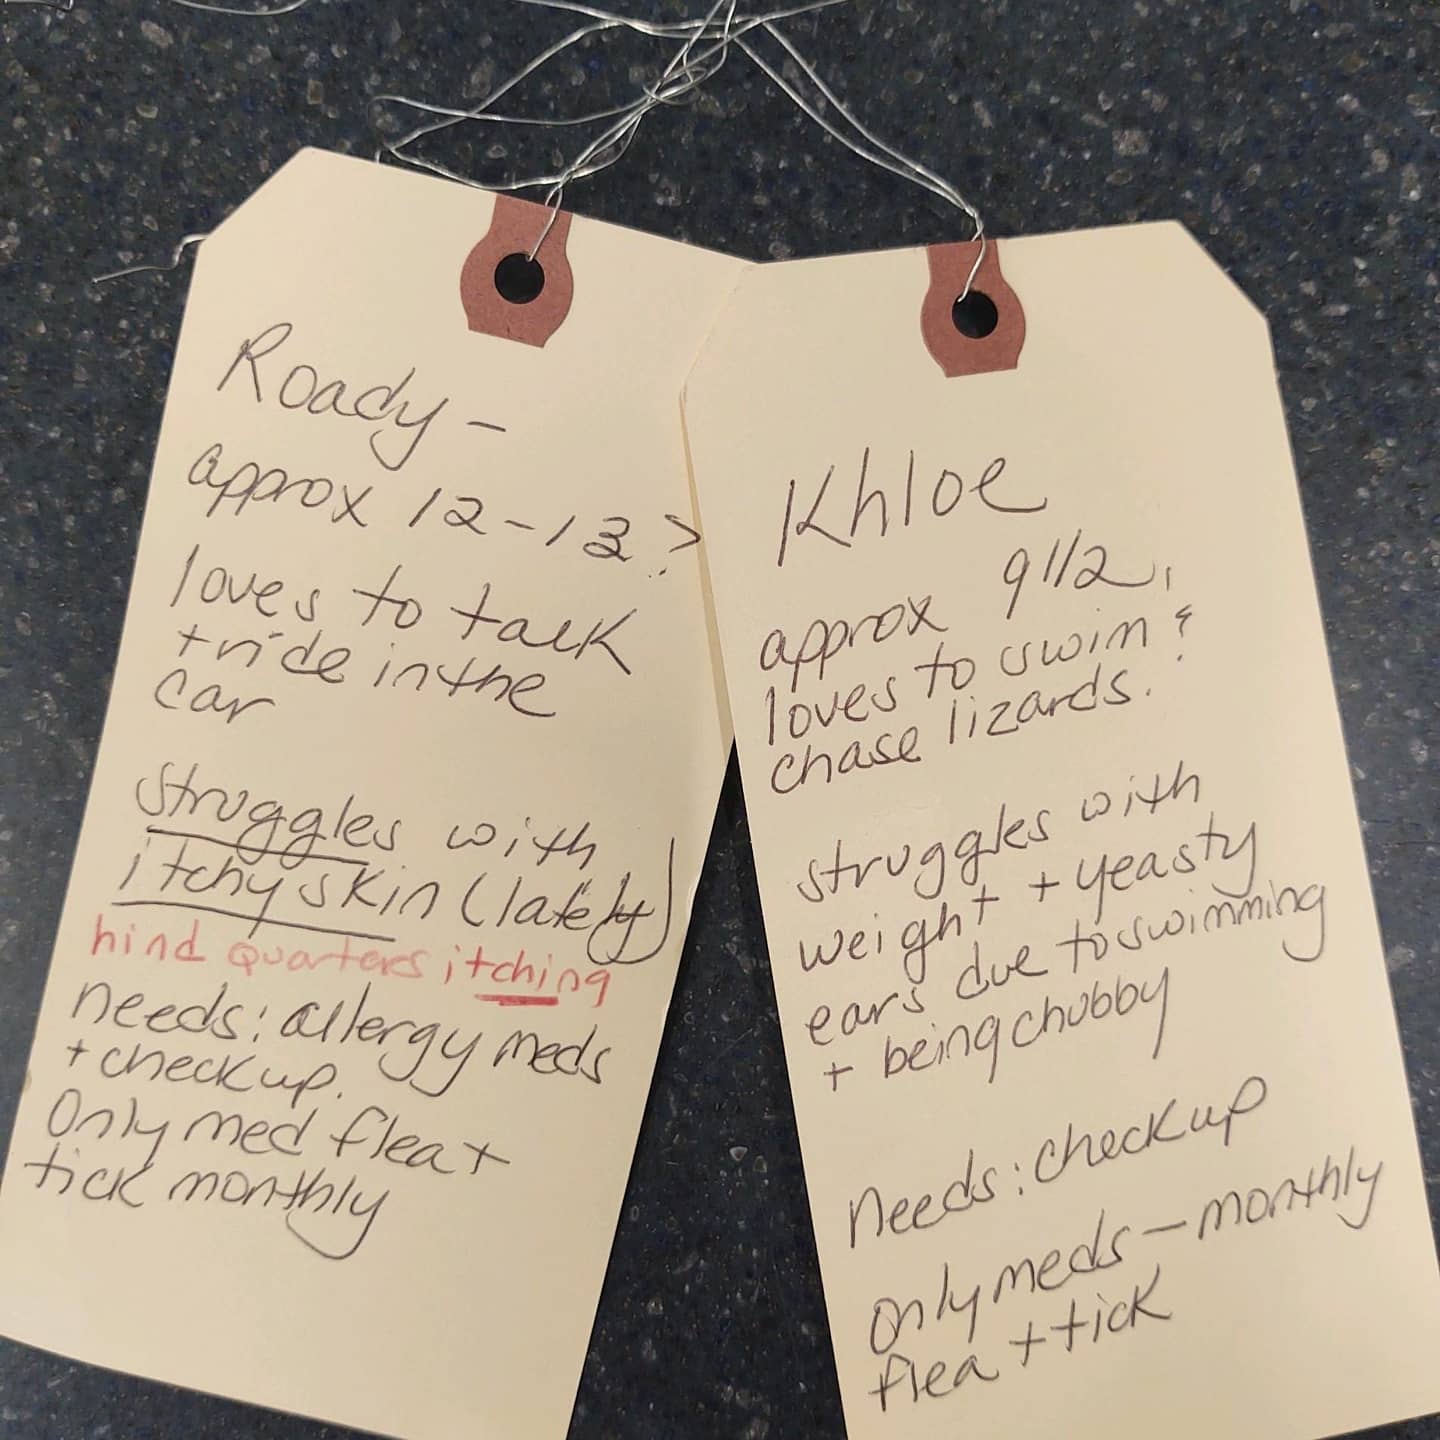 Roady -
approx 12-13?
loves to talk
+ ride in the
car
struggles with
itchy skin (lately)
hind quarters itching
needs: allergy meds
+ checkup.
Only med flea +
tick monthly
Khloe
approx 9 1/2,
loves to swim &
chase lizards.
struggles with
weight + yeasty
ears due to swimming
+ being chubby
needs: checkup
Only meds - monthly
flea + tick